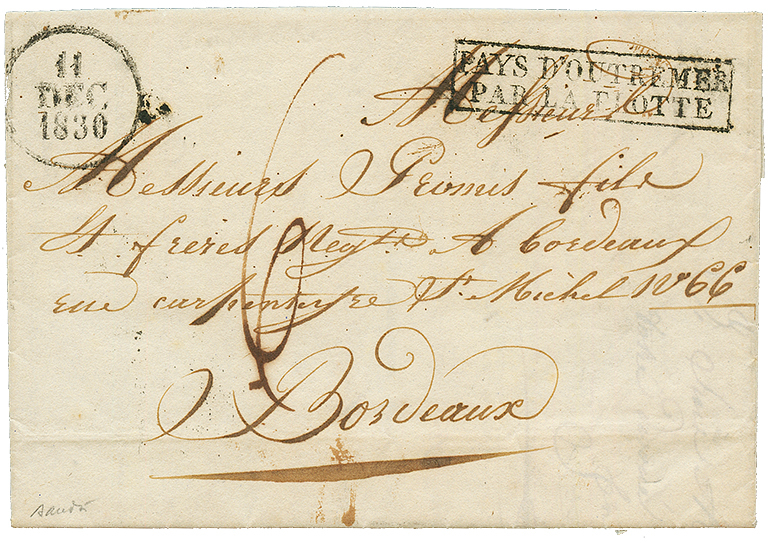 11
DEC
1830
PAYS D'OUTREMER
PAR LA FLOTTE
Messieurs
Messieurs Promis fils
et freres Negts. A bordeaux
rue carpenteyre St. Michel No 66
Bordeaux